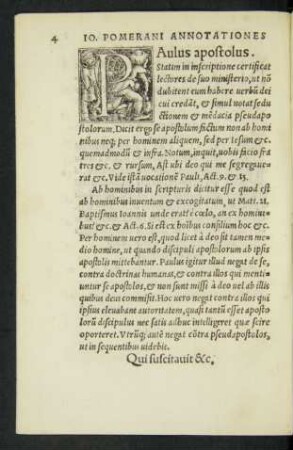 4 IO. POMERANI ANNOTATIONES
PAulus apostolus.
Statim in inscriptione certificat
lectores de suo ministerio, ut nō
dubitent eum habere uerbū dei
cui credāt, & simul notat seductionem
& mēdacia pseudapostolorum.
Dicit ergo se apostolum factum non ab hominibus
neq; per hominem aliquem, sed per Iesum &c.
quemadmodū & infra. Notum, inquit, uobis facio fratres
&c. & rursum, Ast ubi deo qui me segreguerat
&c. Vide istā uocationē Pauli, Act. 9. & 13.
Ab hominibus in scripturis dicitur esse quod est
ab hominibus inuentum & excogitatum, ut Mat. 21.
Baptismus Ioannis unde erat? è cœlo, an ex hominibus?
&c. & Act. 6. Si est ex hoībus consilium hoc &c.
Per hominem uero est, quod licet à deo sit tamen medio
homine, ut quando discipuli apostolorum ab ipsis
apostolis mittebantur. Paulus igitur illud negat de se,
contra doctrinas humanas, & contra illos qui mentiuntur
se apostolos, & non sunt missi à deo uel ab illis
quibus deus commisit. Hoc uero negat contra illos qui
ipsius eleuabane autoritatem, quasi tantū esset apostolorū
discipulus nec satis adhuc intelligeret quæ scire
oporteret. Vtrūq; autē negat cōtra pseudapostolos,
ut in sequentibus uidebis.
Qui suscitauit &c.